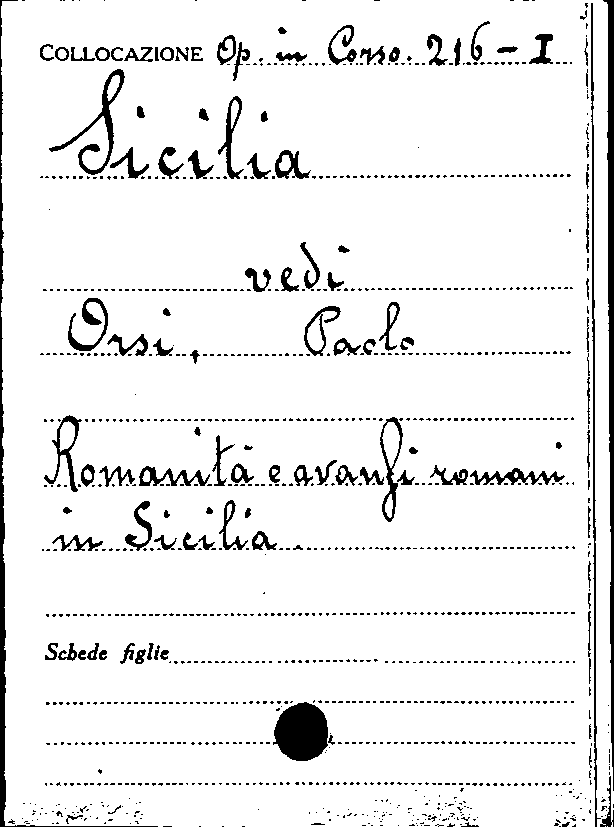 COLLOCAZIONE Op. in Corso. 216 - I
Sicilia
vedi
Orsi, Paolo
Romanità e avanzi romani
in Sicilia.
Schede figlie